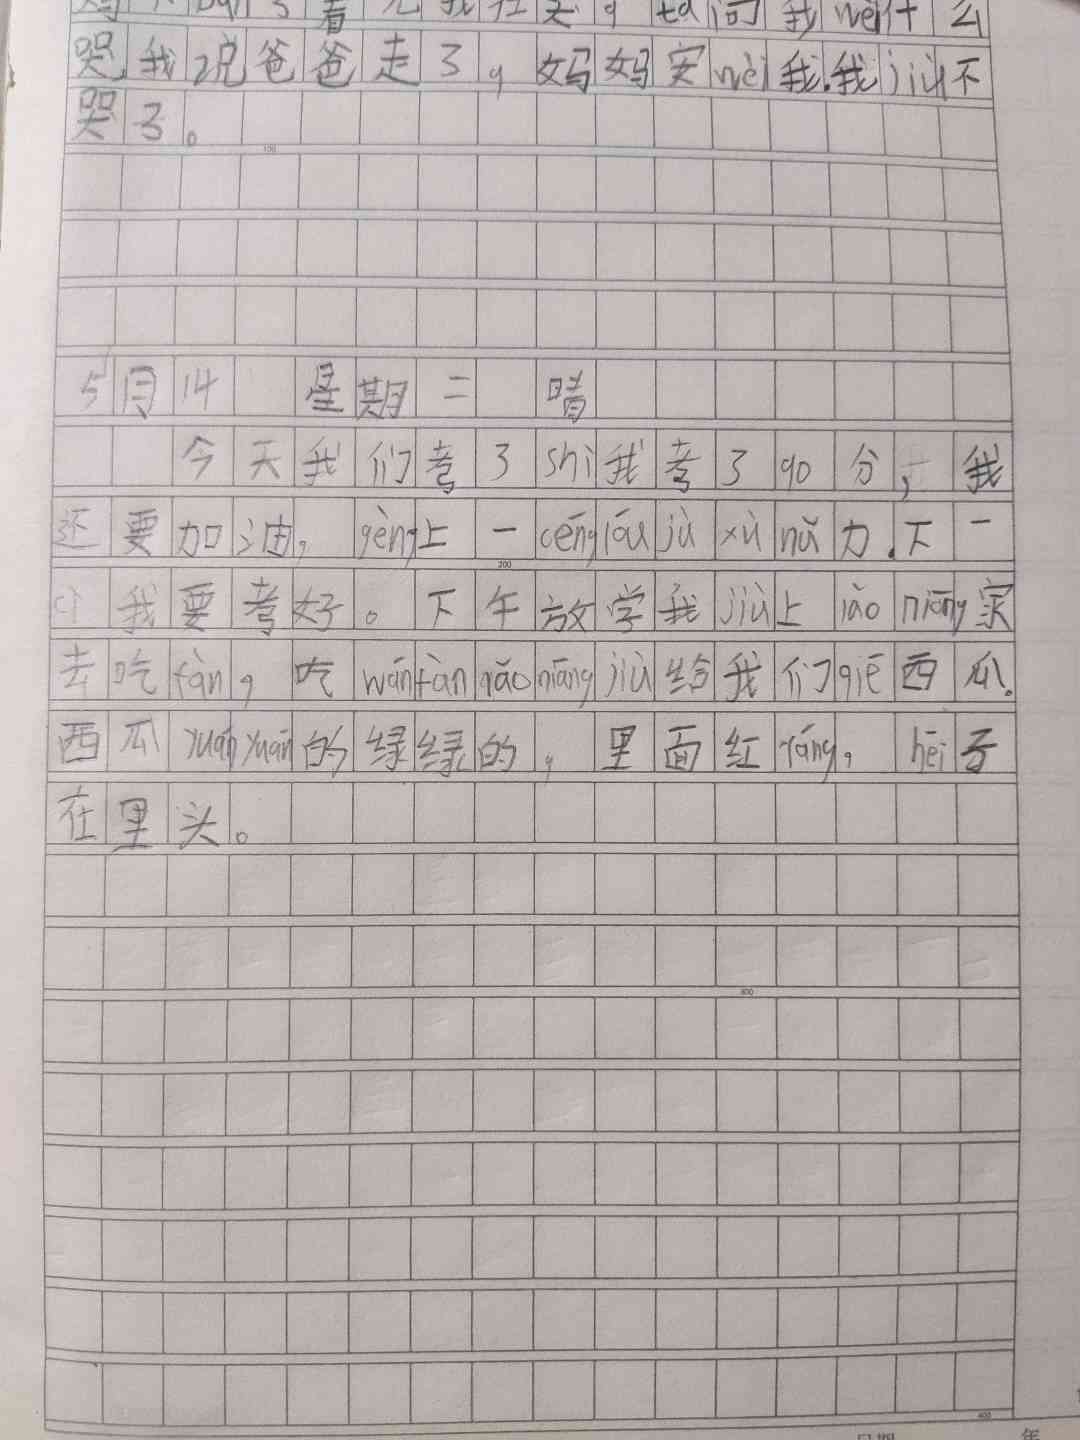 着见我在哭,ta问我wèi什么
哭,我说爸爸走了,妈妈安wèi我.我jiù不
哭了。
100
5月14 星期二 晴
今天我们考了shì我考了90分,我
还要加油,gèng上一céng lóu jì xù nǔ力.下一
cì我要考好。下午放学我jiù上lǎo niāng家
去吃fàn,吃wán fàn lǎo niāng jiù给我们qiē西瓜.
200
西瓜yuán yuán的绿绿的,里面红ráng,hēi子
在里头。
300
400